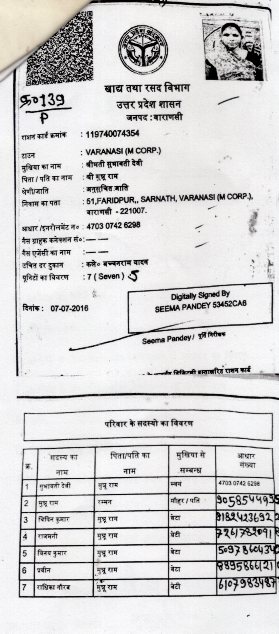 क0139
P
खाद्य तथा रसद विभाग
उत्तर प्रदेश शासन
जनपद : वाराणसी
राशन कार्ड क्रमांक : 119740074354
टाउन : VARANASI (M CORP.)
मुखिया का नाम : श्रीमती सुभावती देवी
पिता / पति का नाम : श्री मुन्नू राम
श्रेणी/जाति : अनुसूचित जाति
निवास का पता : 51,FARIDPUR,, SARNATH, VARANASI (M CORP.)
वाराणसी - 221007.
आधार /इनरोलमेंट न० : 4703 0742 6298
गैस ग्राहक कनेक्शन सं०: — —
गैस एजेंसी का नाम : — —
उचित दर दुकान : बच्चनराम यादव
यूनिटों का विवरण : 7 (Seven) 5
दिनांक : 07-07-2016
Digitally Signed By
SEEMA PANDEY 53452CA6
Seema Pandey / पूर्ति निरीक्षक
राशन कार्ड
परिवार के सदस्यो का विवरण
क्र. सदस्य का नाम पिता/पति का नाम मुखिया से सम्बन्ध आधार संख्या
1 सुभावती देवी मुन्नू राम स्वयं 4703 0742 6298
2 मुन्नू राम रम्मन शौहर / पति
3 विपिन कुमार मुन्नू राम बेटा
4 राजमनी मुन्नू राम बेटा
5 विजय कुमार मुन्नू राम बेटा
6 प्रवीन मुन्नू राम बेटा
7 राधिका गौरव मुन्नू राम बेटा